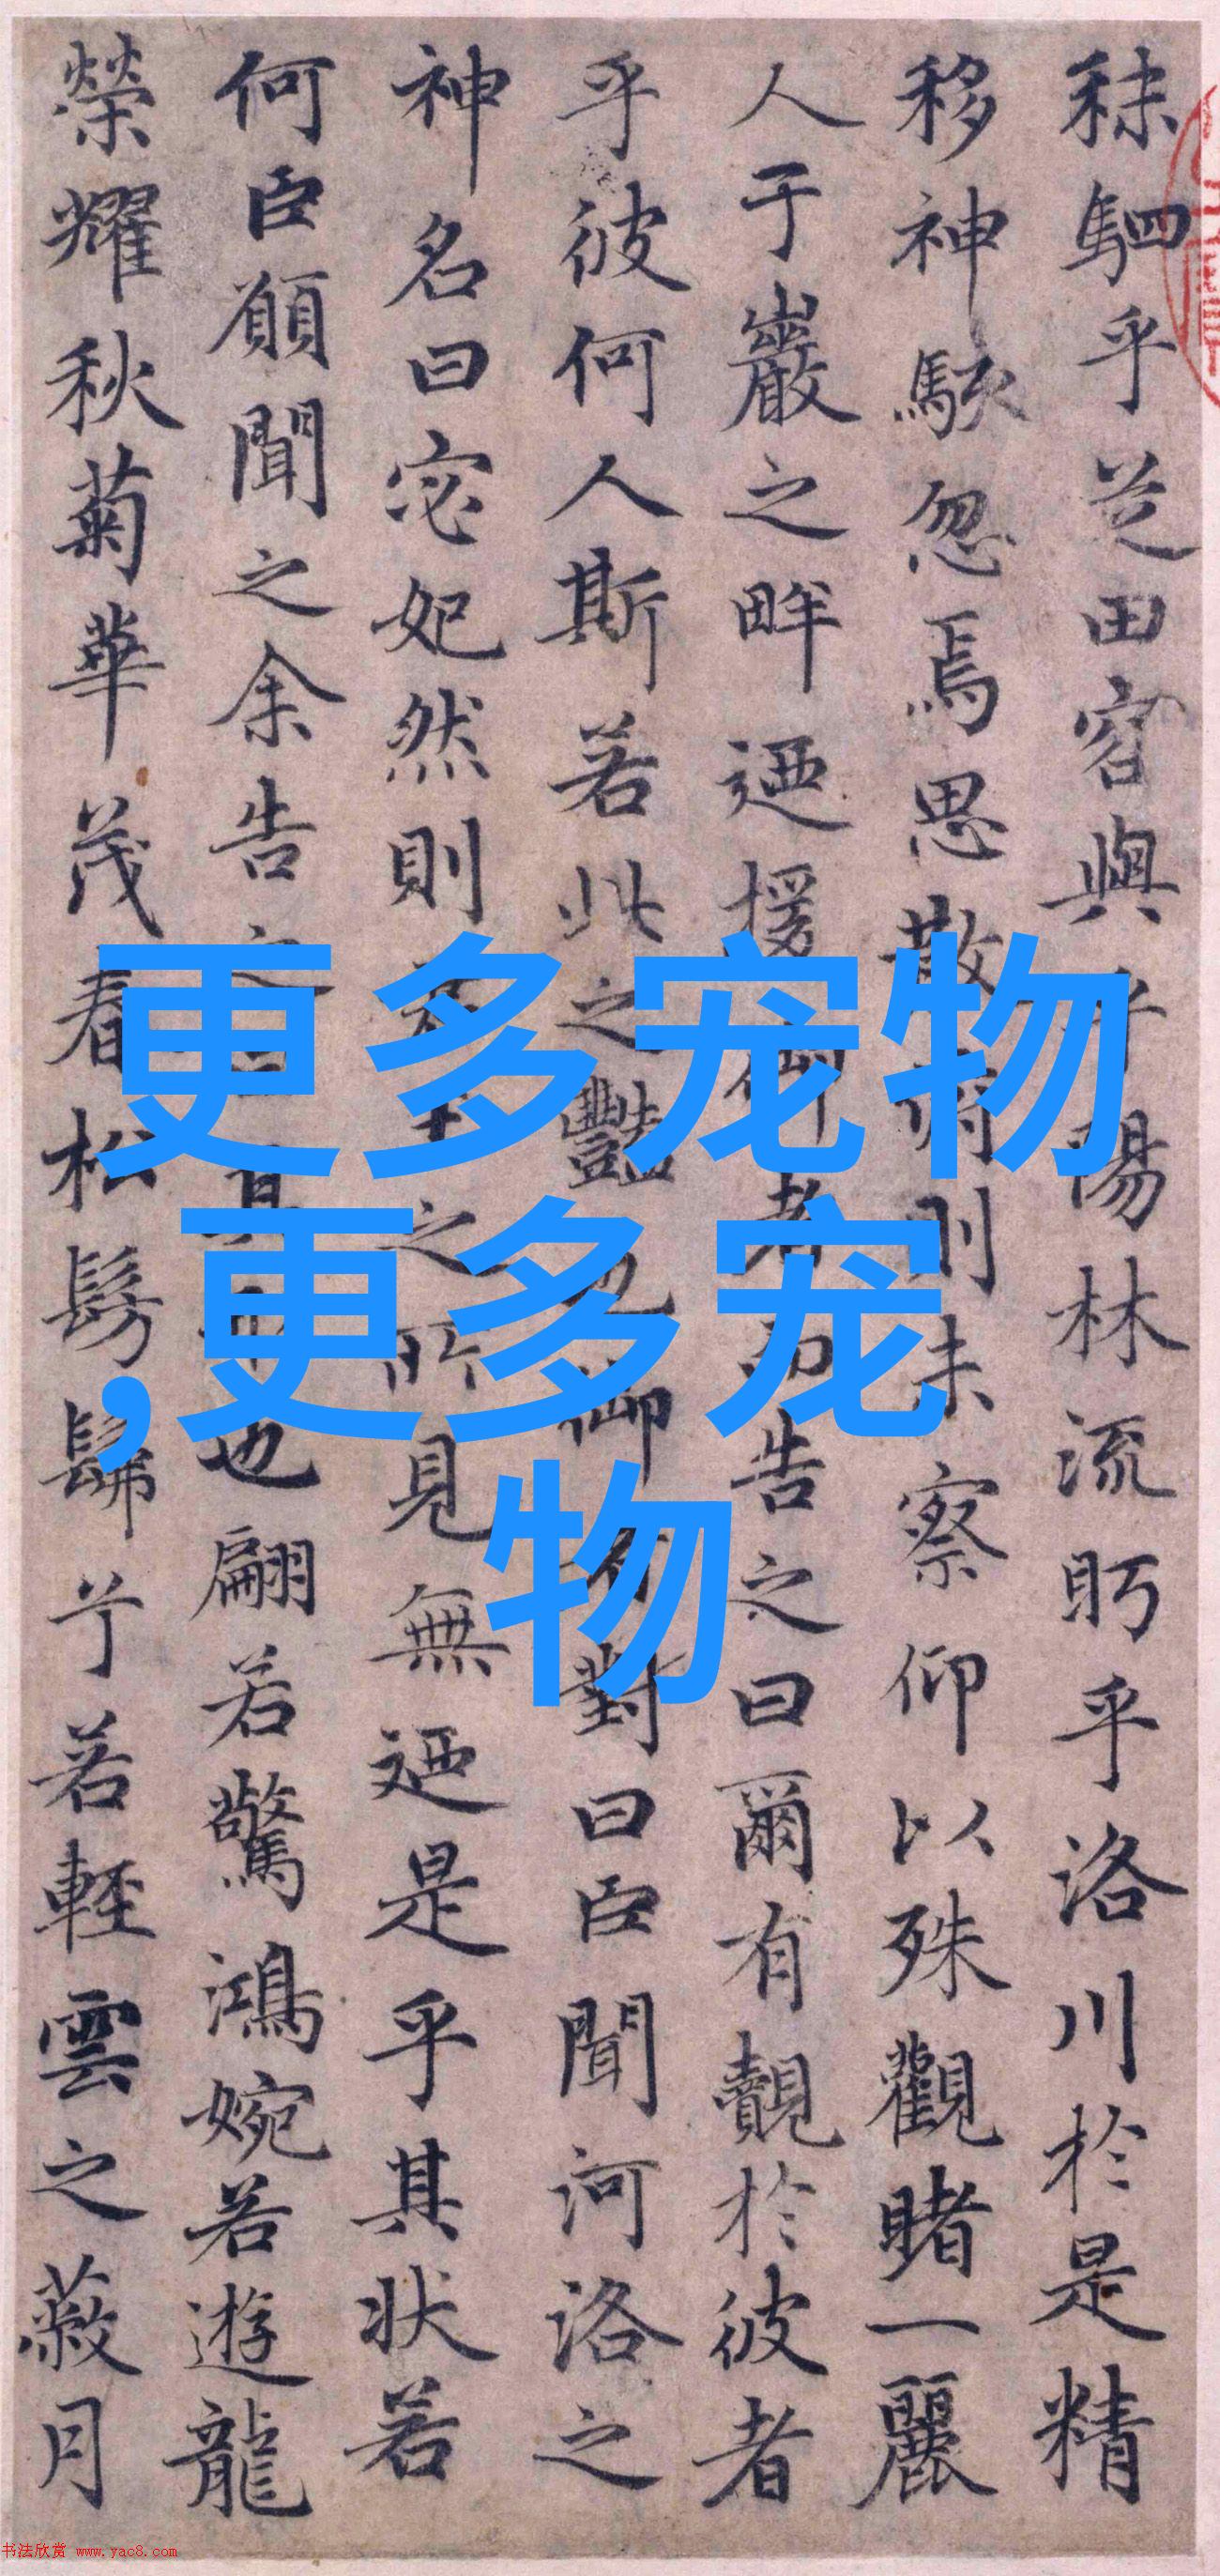 秣駟乎芝田容與乎陽林流眄乎洛川於是精
移神駭忽焉思散俯則未察仰以殊觀睹一麗
人于巖之畔迺援御者而告之曰爾有覿於彼者
乎彼何人斯若此之豔也御者對曰臣聞河洛之
神名曰宓妃然則君王之所見無迺是乎其狀若
何臣願聞之余告之曰其形也翩若驚鴻婉若遊龍
榮耀秋菊華茂春松髣髴兮若輕雲之蔽月
更多宠物
,更多宠
物
书法欣赏 www.yac8.com